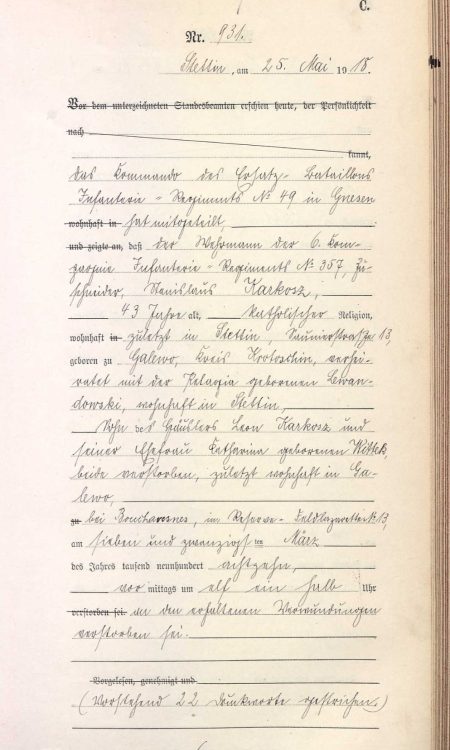 C.
Nr. 931.
Stettin, am 25. Mai 1918.
Vor dem unterzeichneten Standesbeamten erschien heute, der Persönlichkeit
nach
kannt,
das Kommando des Ersatz-Bataillons
Infanterie-Regiments No 49 in Gnesen
wohnhaft in hat mitgeteilt,
und zeigte an, daß der Wehrmann der 6. Kom-
pagnie Infanterie-Regiments No 357, Zu-
schneider, Stanislaus Karkosz,
43 Jahre alt, katholischer Religion,
wohnhaft in zuletzt in Stettin, Saunierstraße 13,
geboren zu Galewo, Kreis Krotoschin, verhei-
ratet mit der Pelagia geborenen Lewan-
dowski, wohnhaft in Stettin,
Sohn des Häuslers Leon Karkosz und
seiner Ehefrau Katharina geborenen Wittek,
beide verstorben, zuletzt wohnhaft in Ga-
lewo,
zu bei in Reserve-Feldlazarett No 13,
am sieben und zwanzigsten März
des Jahres tausend neunhundert achtzehn,
vormittags um elf ein halb Uhr
verstorben sei. an den erhaltenen Verwundungen
verstorben sei.
Vorgelesen, genehmigt und
(Vorstehend 22 Druckworte gestrichen.)